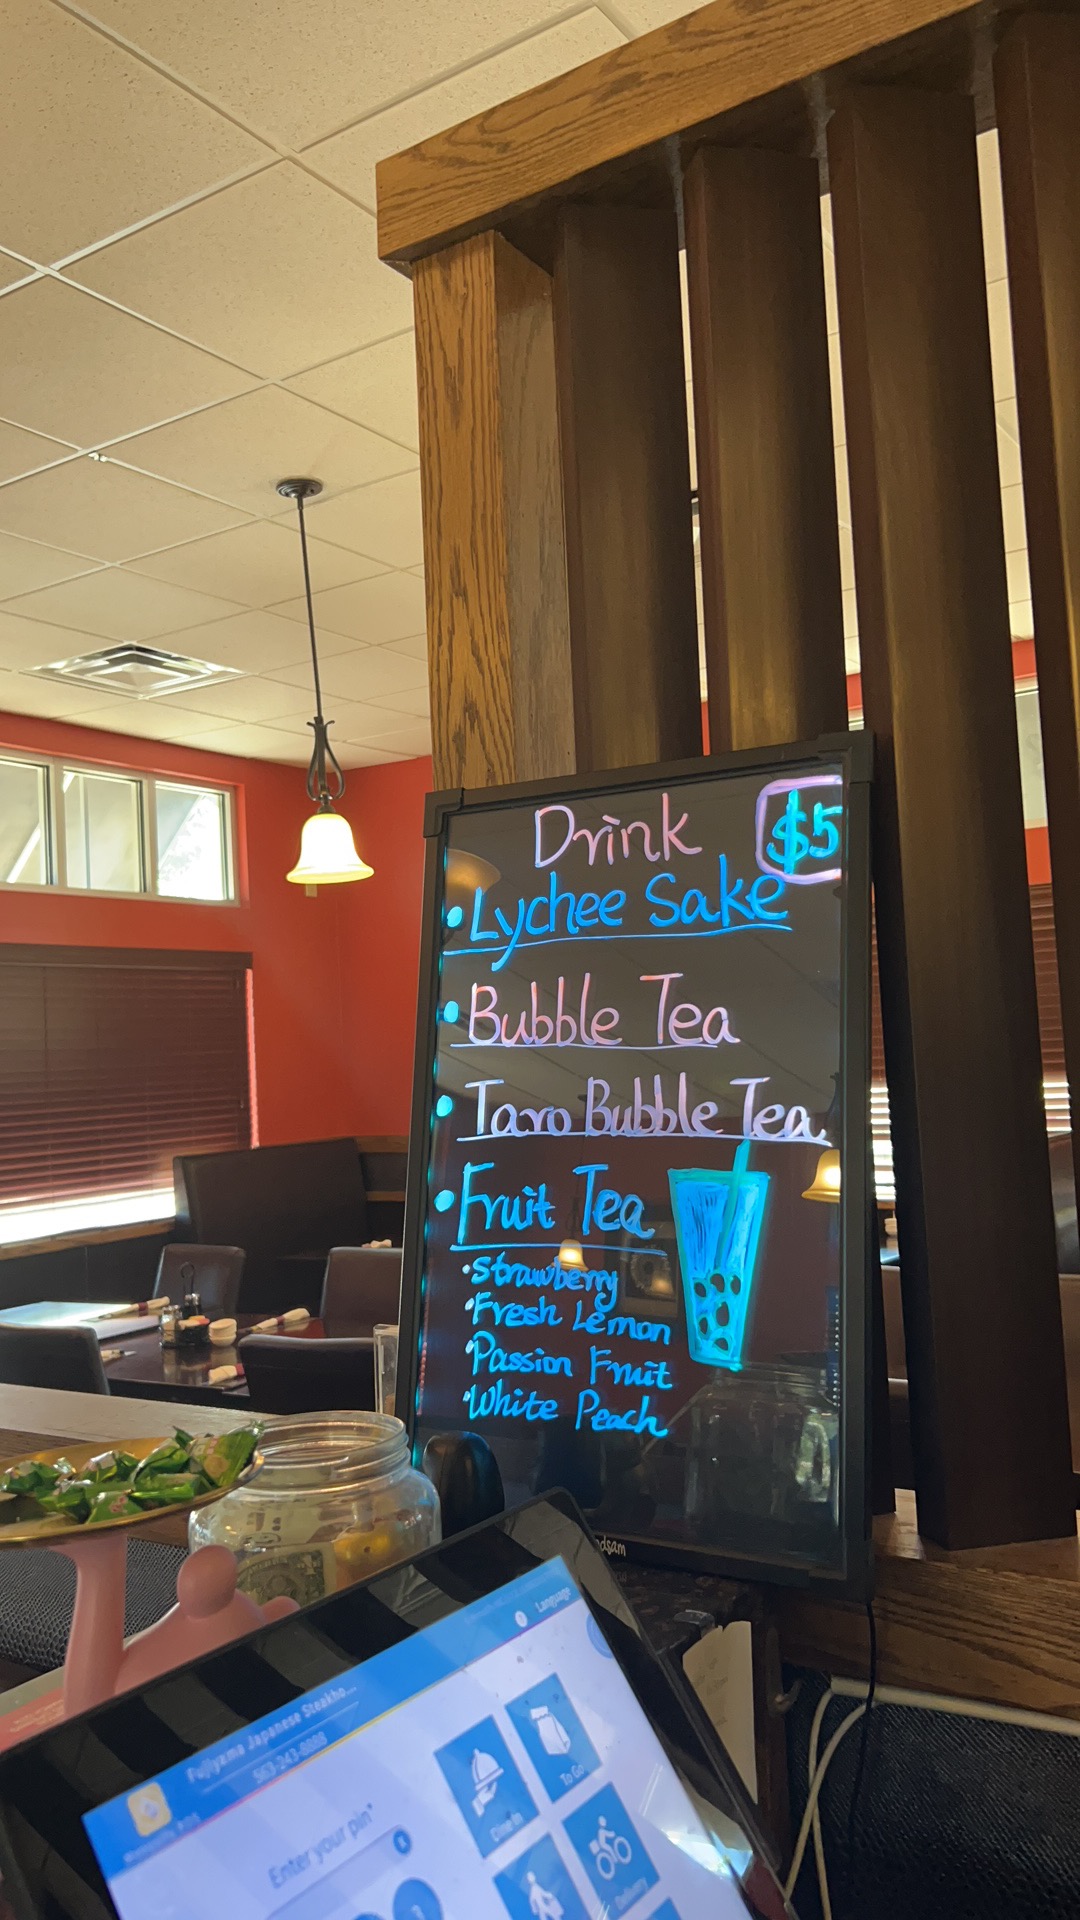 Drink $5
• Lychee Sake
• Bubble Tea
• Taro Bubble Tea
• Fruit Tea
• Strawberry
• Fresh Lemon
• Passion Fruit
• White Peach
Language
Fujiyama Japanese Steakho...
563-243-8888
Enter your pin*
Dine In
To Go
Delivery